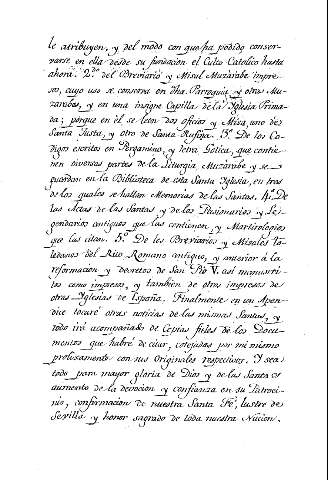 le atribuyen, y del modo con que ha podido conser-
varse en ella desde su fundacion el Culto Catolico hasta
ahora. 2.º del Breviario y Misal Muzárabe impre-
so, cuyo uso se conserva en dha. Parroquia y otras Mu-
zarabes, y en una insigne Capilla de la Iglesia Prima-
da; porque en él se leen dos oficios y Misa, uno de
Santa Justa, y otro de Santa Rufina. 3.º De los Co-
digos escritos en Pergamino, y letra Gotica, que contie-
nen diversas partes de la Liturgia Muzárabe y se
guardan en la Biblioteca de esta Santa Iglesia, en tres
de los quales se hallan Memorias de las Santas. 4.º De
las Actas de las Santas, y de los Pasionarios y Le-
gendarios antiguos que las contienen, y Martirologios
que las citan. 5.º De los Breviarios y Misales To-
ledanos del Rito Romano antiguo, y anterior á la
reformacion y decretos de San Pio V. así manuscri-
tos como impresos, y tambien de otros impresos de
otras Iglesias de España. Finalmente en un Apen-
dice tocaré otras noticias de las mismas Santas, y
todo irá acompañado de Copias fieles de los Docu-
mentos que habré de citar, cotejados por mi mismo
prolixamente con sus Originales respectivos. Y sea
todo para mayor gloria de Dios y de las Santas
aumento de la devocion y confianza en su Patroci-
nio, confirmacion de nuestra Santa Fé, lustre de
Sevilla y honor sagrado de toda nuestra Nacion.